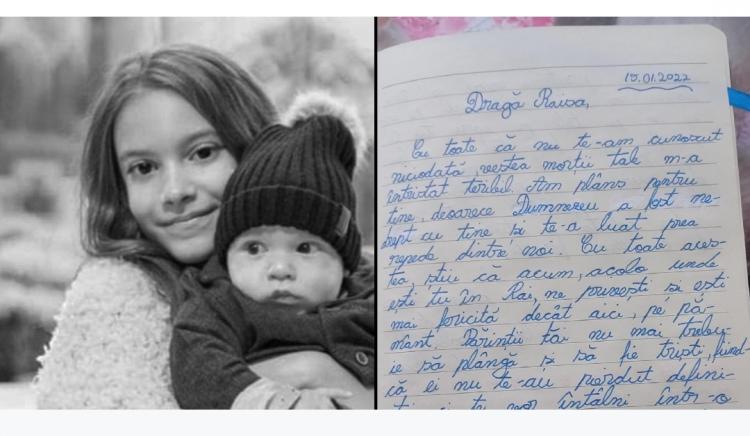 15.01.2022
Dragă Raisa,
Cu toate că nu te-am cunoscut
niciodată, vestea morții tale m-a
întristat teribil. Am plâns pentru
tine, deoarece Dumnezeu a fost ne-
drept cu tine și te-a luat prea
repede dintre noi. Cu toate aces-
tea, știu că acum, acolo unde
ești tu în Rai, ne privești și ești
mai fericită decât aici, pe pă-
mânt. Părinții tăi nu mai trebu-
ie să plângă și să fie triști, fiind-
că ei nu te-au pierdut defini-
întâlni într-o